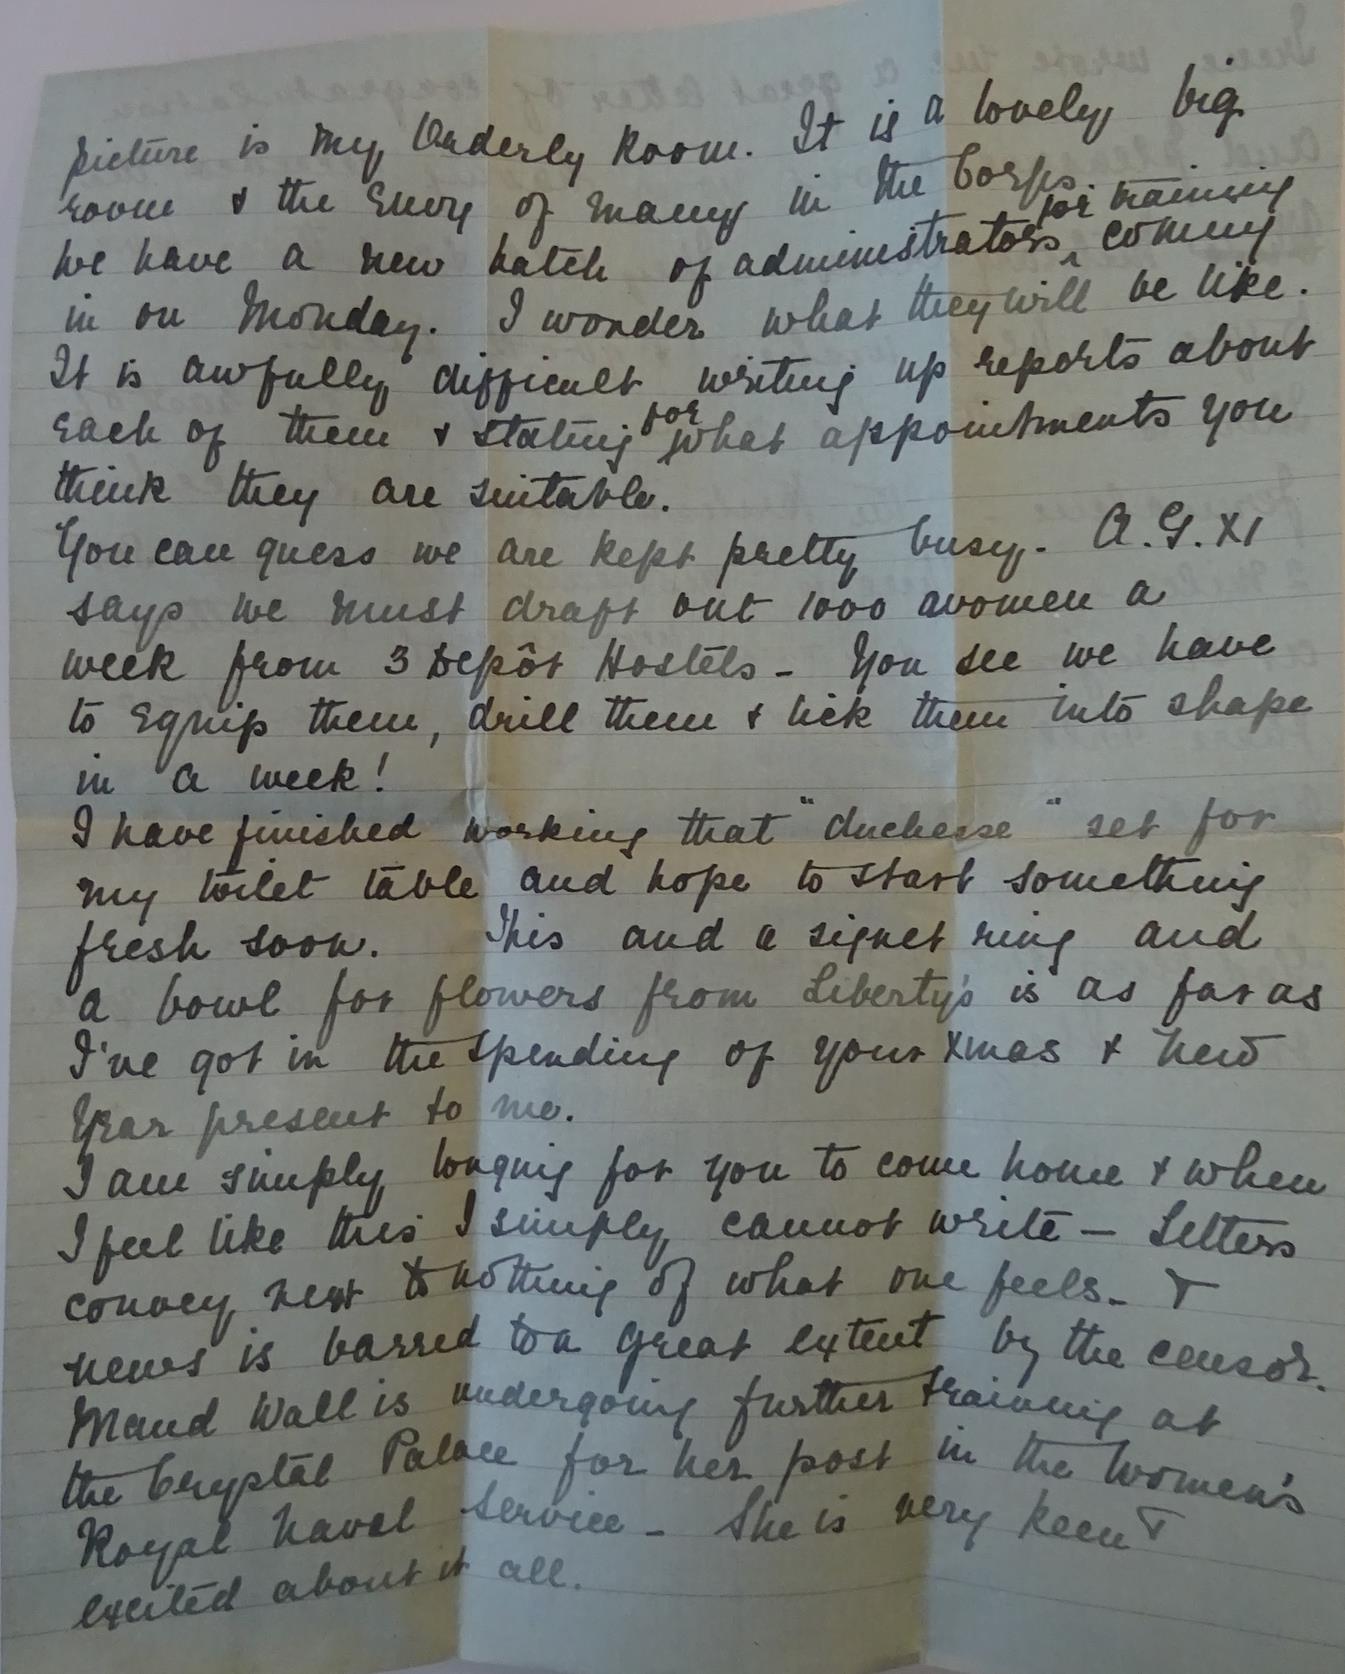 picture is my Orderly Room. It is a lovely big
room & the envy of many in the Corps.
for training
we have a new batch of administrators ‸ coming
in on Monday. I wonder what they will be like.
It is awfully difficult writing up reports about
each of them & stating for what appointments you
think they are suitable.
You can guess we are kept pretty busy. A.G.XI
says we must draft out 1000 women a
week from 3 Depôt Hostels - You see we have
to equip them, drill them & lick them into shape
in a week!
I have finished working that "duchesse" set for
my toilet table and hope to start something
fresh soon. This and a signet ring and
a bowl for flowers from Liberty's is as far as
I've got in the spending of your Xmas & New
Year present to me.
I am simply longing for you to come home & when
I feel like this I simply cannot write - Letters
convey next to nothing of what one feels - &
news is barred to a great extent by the censor.
Maud Wall is undergoing further training at
the Crystal Palace for her post in the Women's
Royal Naval Service - She is very keen &
excited about it all.